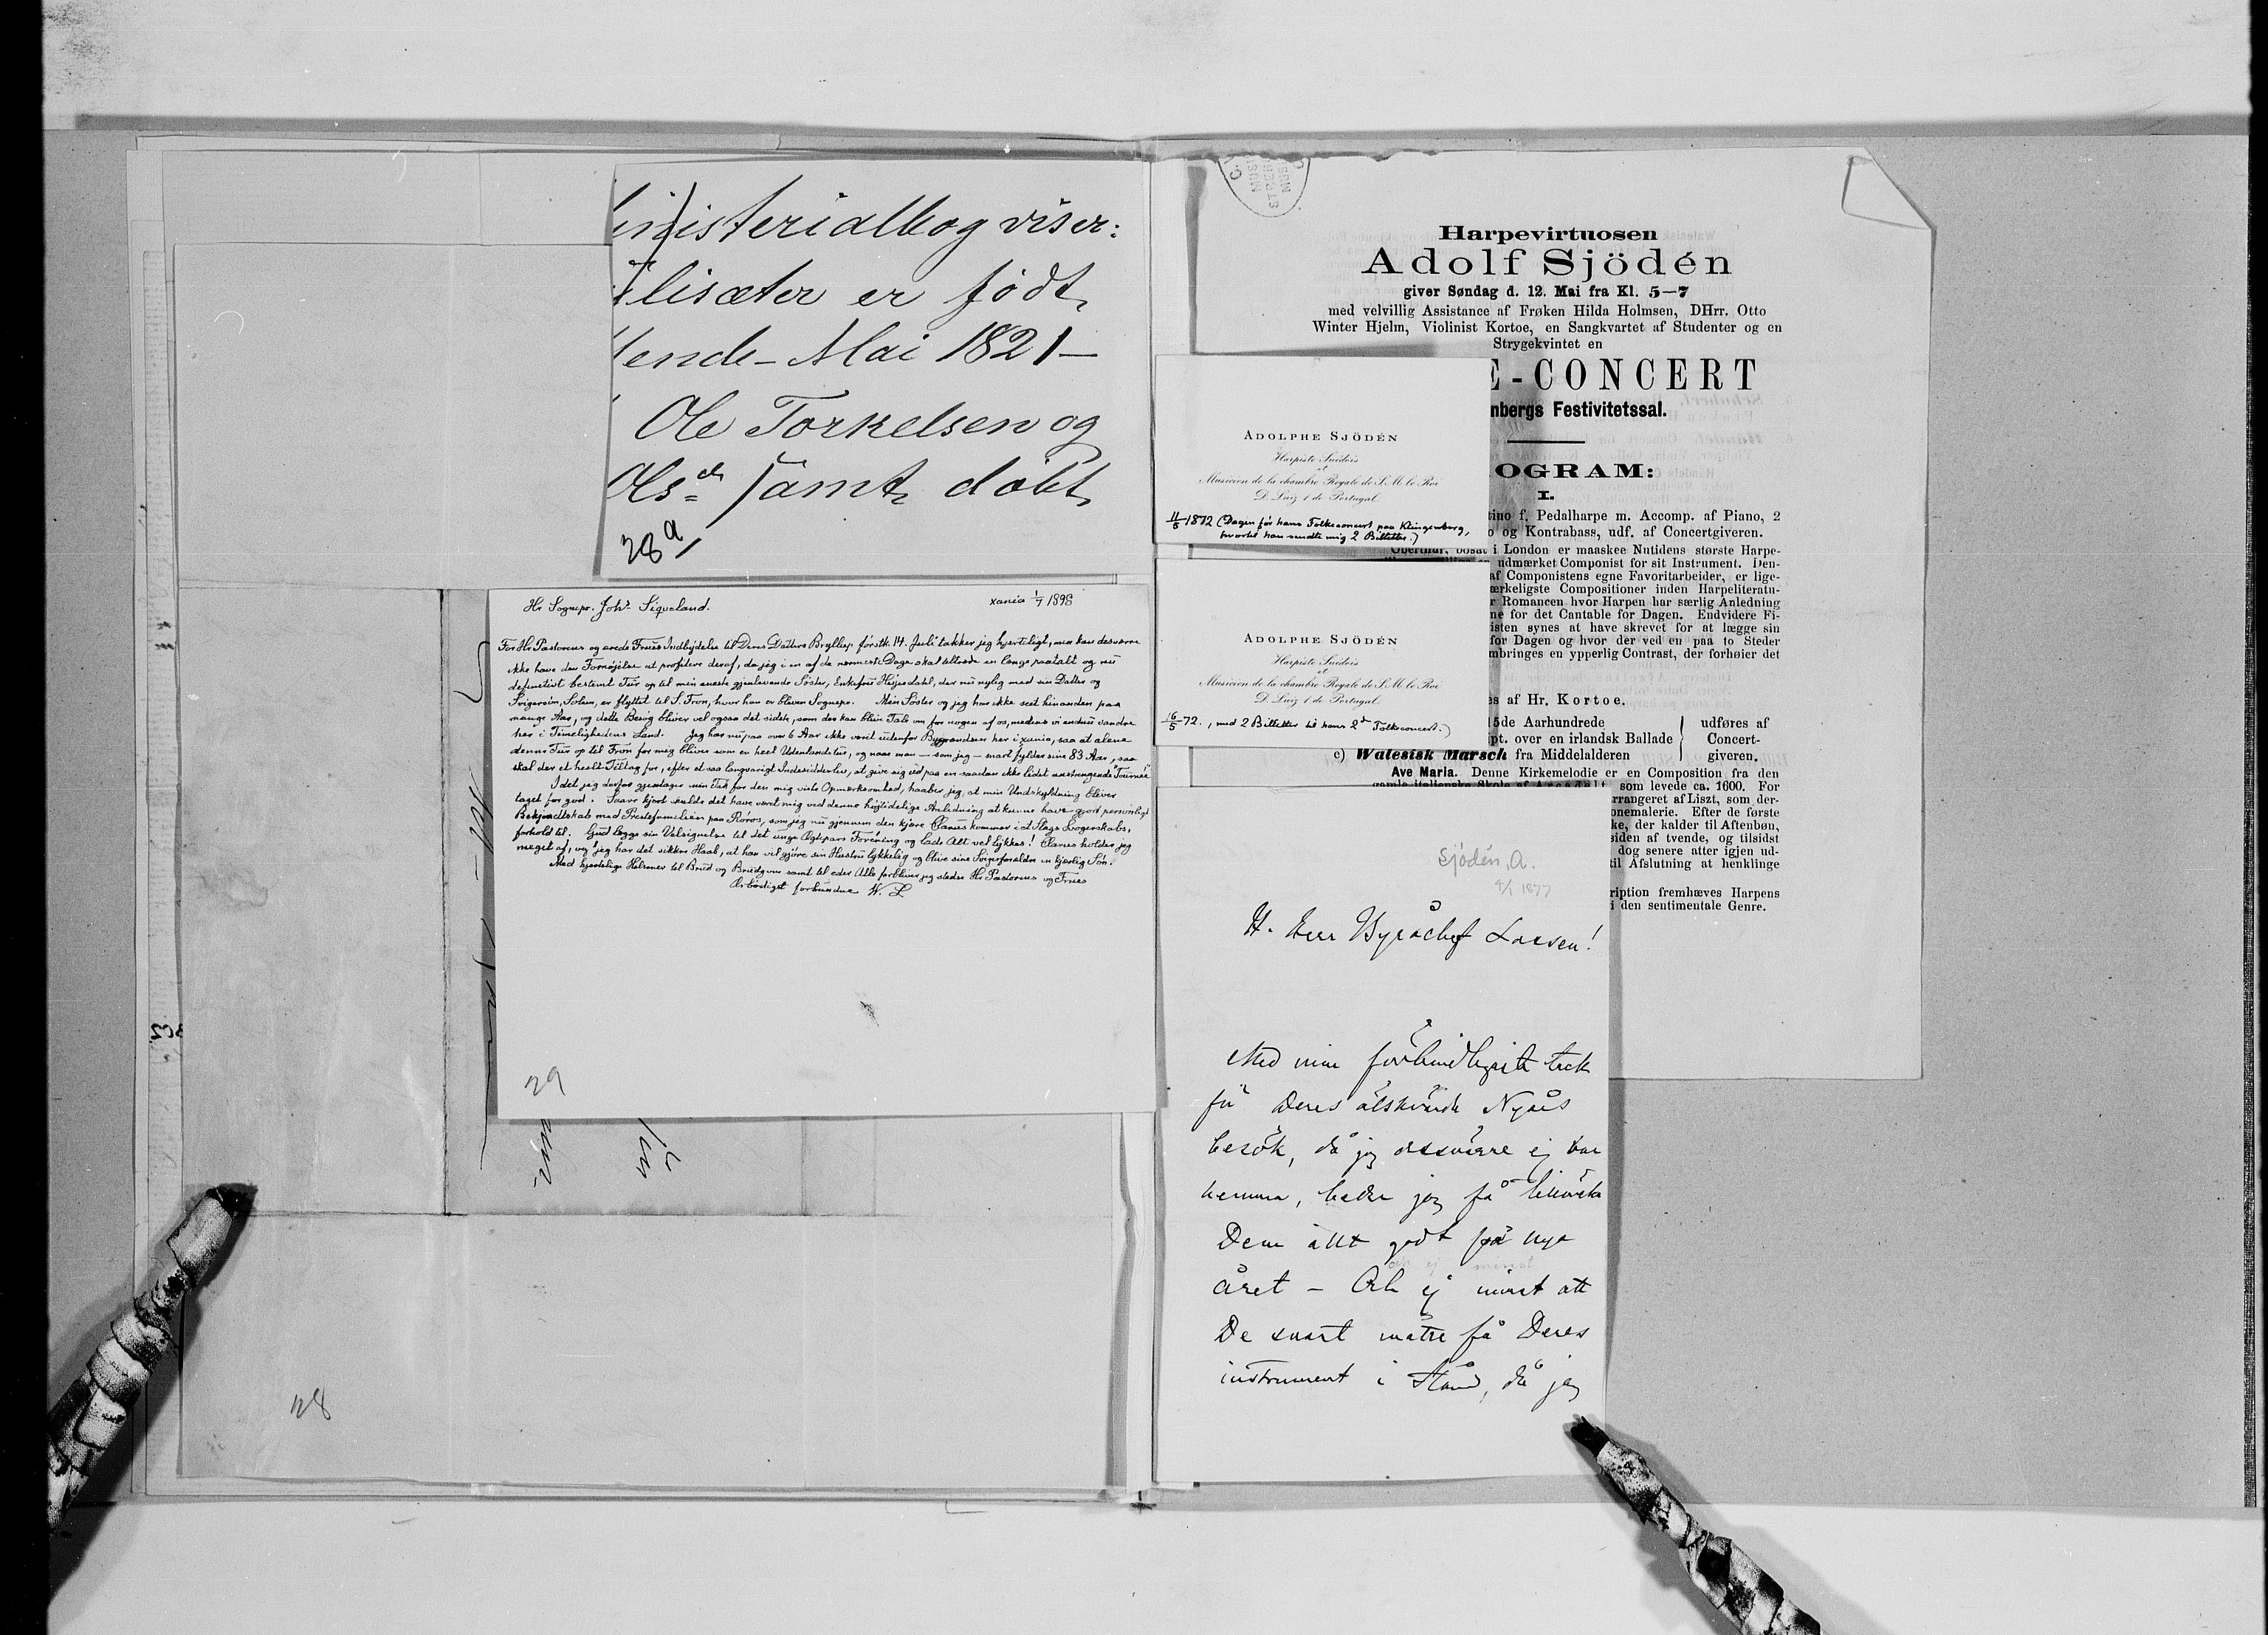 inisterialbog viser:
lisæter er födt,
ende – Mai 1821 –
Ole Torkelsen og
Ols.^dr samt, döbt,
28^a
Hr Sognepr. Joh^s. Siqveland.
xania 1/7 1898
For Hr Pastorens og ærede Frues Indbydelse til Deres Datters Bryllup förstk. 14. Juli takker jeg hjerteligt, men kan desværre
ikke have den Fornöjelse at profitere deraf, da jeg i en af de nærmeste Dage skal tiltræde en længe paatalt og nu
definitivt bestemt Tur op til min eneste gjenlevende Söster, Enkefrue Heyerdahl, der nu nylig med sin Datter og
Svigersön, Solem, er flyttet til S. Fron, hvor han er bleven Sognepr. Min Söster og jeg har ikke seet hinanden paa
mange Aar, og dette Besög bliver vel ogsaa det sidste, som der kan blive Tale om for nogen af os, medens vi endnu vandre
her i Timelighedens Land. Jeg har nu paa over 6 Aar ikke været udenfor Bygrændsen her i xania, saa at alene
denne Tur op til Fron for mig bliver som en heel Udenlandstur, og naar man – som jeg – snart fylder sine 83 Aar, saa
skal der et heelt Tiltag for, efter et saa langvarigt Indesidderliv, at give sig ud paa en saadan ikke lidet anstrengende "Tournée".
Idet jeg derfor gjentager min Tak for den mig viste Opmærksomhed, haaber jeg, at min Undskyldning bliver
taget for god. Saare kjært vilde det have været mig ved denne höjtidelige Anledning at kunne have gjort personligt
Bekjendtskab med Præstefamilien paa Röros, som jeg nu gjennem den kjære Claus kommer i et Slags Svogerskabs-
forhold til. Gud lægge sin Velsignelse til det unge Ægtepars Forening og lade Alt vel lykkes! Claus holder jeg
meget af, og jeg har det sikkre Haab, at han vil gjöre sin Hustru lykkelig og blive sine Svigerforældre en kjærlig Sön.
Med hjertelige Hilsener til Brud og Brudgom samt til eder Alle forbliver jeg stedse Hr Pastorens og Frues
Ærbödigst forbundne W. L
29
28
Harpevirtuosen
Adolf Sjödén
giver Søndag d. 12. Mai fra Kl. 5—7
med velvillig Assistance af Frøken Hilda Holmsen, DHrr. Otto
Winter Hjelm, Violinist Kortoe, en Sangkvartet af Studenter og en
Strygekvintet en
E-CONCERT
nbergs Festivitetssal.
OGRAM:
I.
tino f. Pedalharpe m. Accomp. af Piano, 2
o og Kontrabass, udf. af Concertgiveren.
Oberthür, bosat i London er maaskee Nutidens største Harpe-
udmærket Componist for sit Instrument. Den-
af Componistens egne Favoritarbeider, er lige-
ærkeligste Compositioner inden Harpeliteratu-
r Romancen hvor Harpen har særlig Anledning
ne for det Cantable for Dagen. Endvidere Fi-
isten synes at have skrevet for at lægge sin
for Dagen og hvor der ved en paa to Steder
mbringes en ypperlig Contrast, der forhøier det
es af Hr. Kortoe.
15de Aarhundrede
pt. over en irlandsk Ballade
c) Walesisk Marsch fra Middelalderen
udføres af
Concert-
giveren.
Ave Maria. Denne Kirkemelodie er en Composition fra den
gamle italienske Skole af Arcadelt, som levede ca. 1600. For
rrangeret af Liszt, som der-
onemalerie. Efter de første
ke, der kalder til Aftenbøn,
siden af tvende, og tilsidst
dog senere atter igjen ud-
til Afslutning at henklinge
ription fremhæves Harpens
i den sentimentale Genre.
ADOLPHE SJÖDÉN
Harpiste Suédois
et
Musicien de la chambre Royale de S.M. le Roi
D. Luiz 1 de Portugal.
11/5 1872 (Dagen för hans Folkeconcert paa Klingenberg,
hvortil han sendte mig 2 Billetter.)
ADOLPHE SJÖDÉN
Harpiste Suédois
et
Musicien de la chambre Royale de S.M. le Roi
D. Luiz 1 de Portugal.
16/5 72., med 2 Billetter til hans 2^den Folkeconcert.)
Sjödén, A.
4/1 1877
H. Herr Byråchef Lassen!
Med min förbindtligaste tack
för Deres älskvärda Nyårs
besök, då jeg dessværre ej var
hemma, beder jeg få tillönska
Dem allt godt på nya
året – Och ej minst att
De snart måtte få Deres
instrument i stånd, då jeg